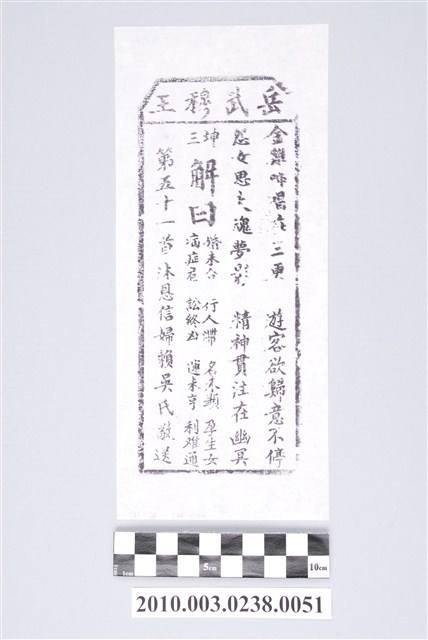 岳武穆王
金雞啼唱在三更 遊客欲歸意不停
怨女思夫魂夢影 精神貫注在幽冥
坤三
解曰
婚未合 行人滯 名未顯 孕生女
病症危 訟終凶 運未亨 利难通
第五十一首沐恩信婦賴吳氏敬送
1cm 5cm 10cm
2010.003.0238.0051